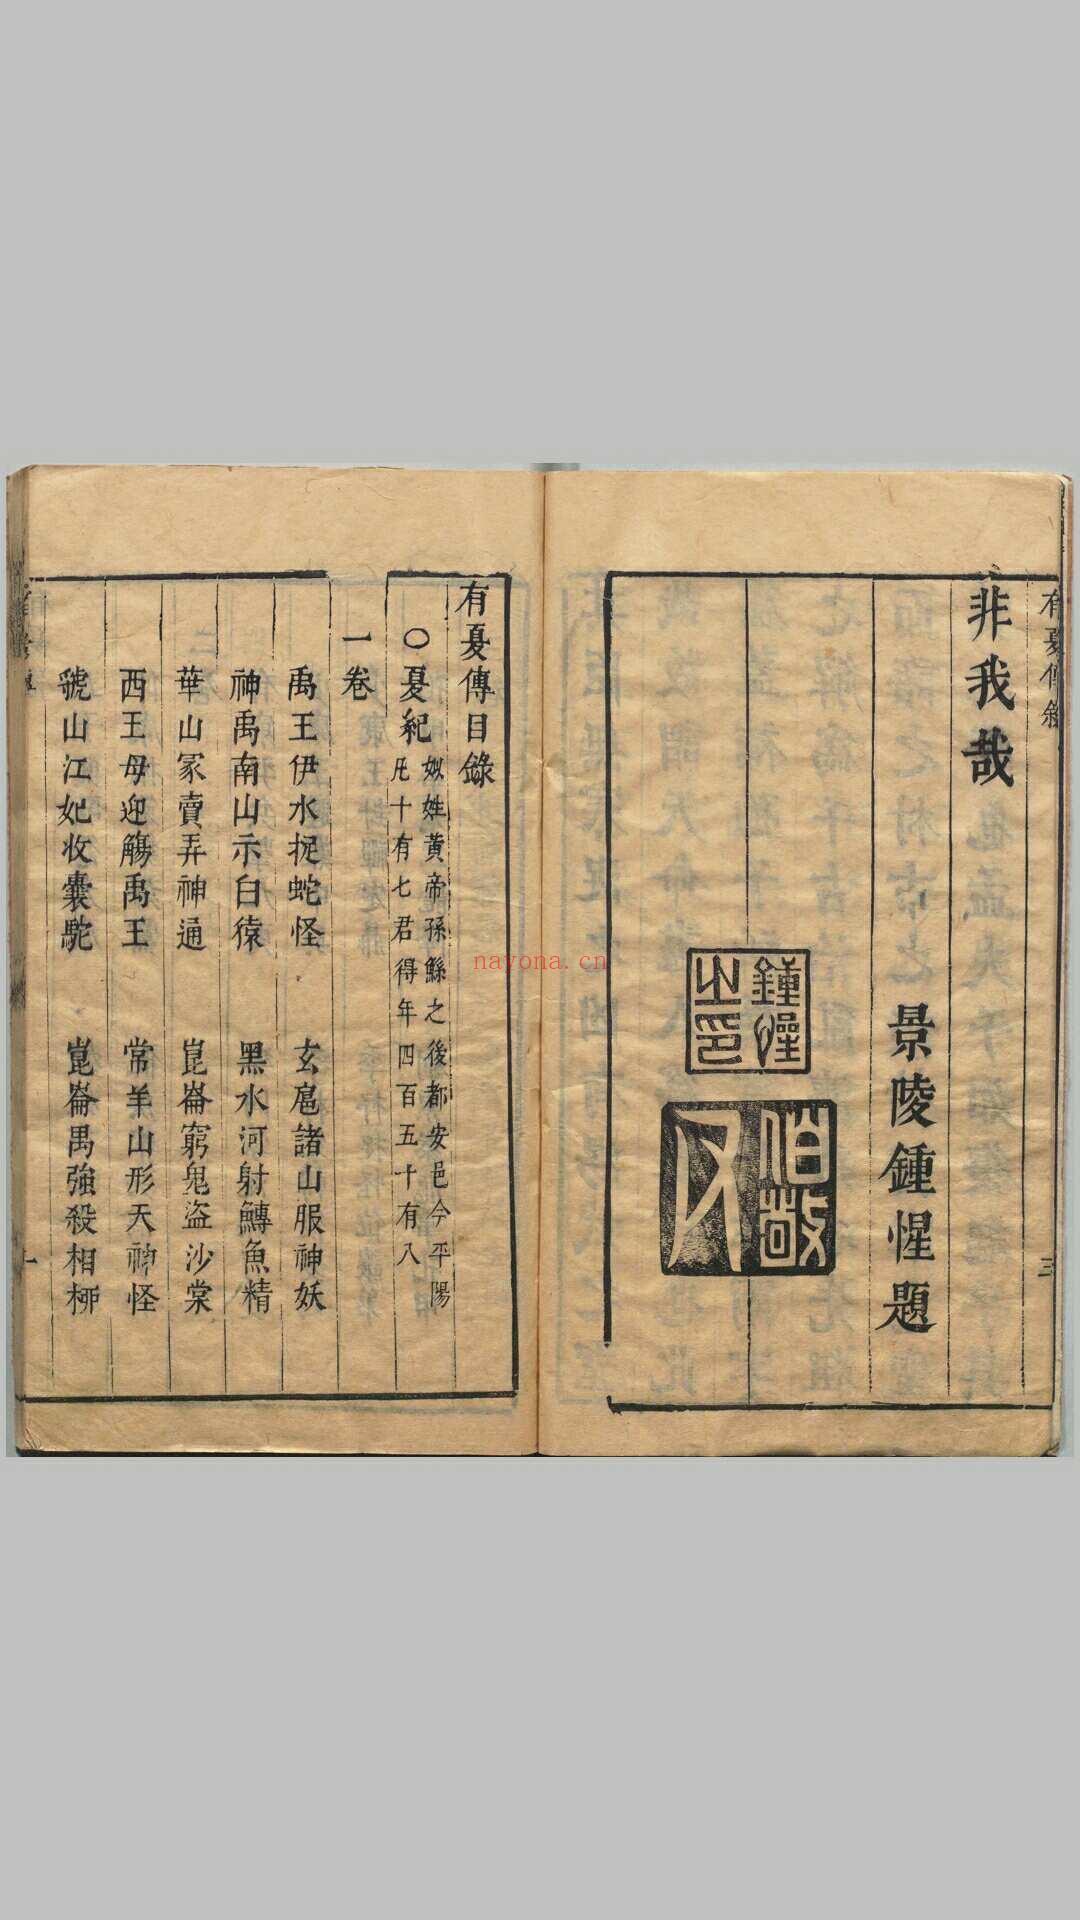 有夏傳敘
非我哉
景陵鍾惺題
鍾惺之印
伯敬
三
nayona.cn
有夏傳目錄
○夏紀 姒姓黃帝孫鯀之後都安邑今平陽
凡十有七君得年四百五十有八
一卷
禹王伊水捉蛇怪 玄扈諸山服神妖
神禹南山示白猿 黑水河射鱄魚精
華山冢賣弄神通 崑崙窮鬼盜沙棠
西王母迎觴禹王 常羊山形天神怪
號山江妃收囊駝 崑崙禺強殺相桺
一